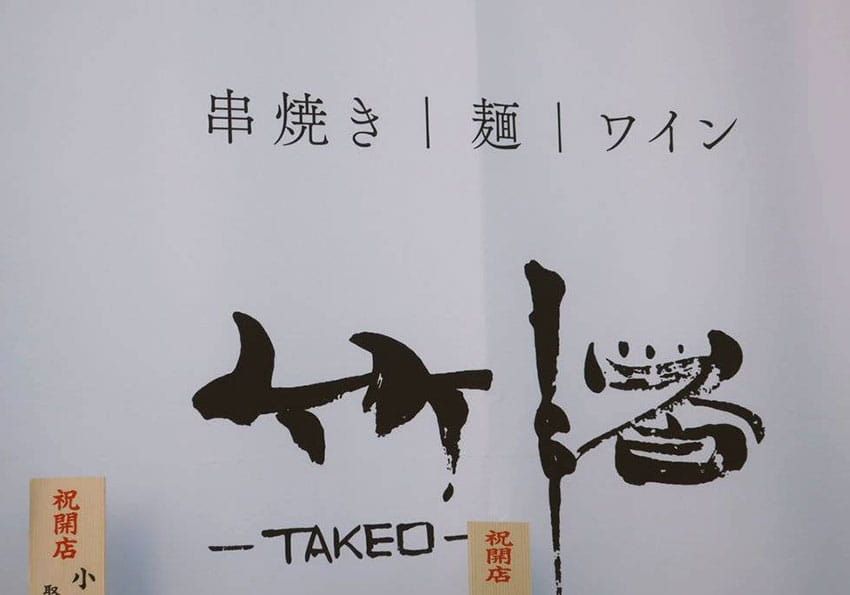 串焼き | 麺 | ワイン
竹
- TAKEO -
祝開店
小
祝開店